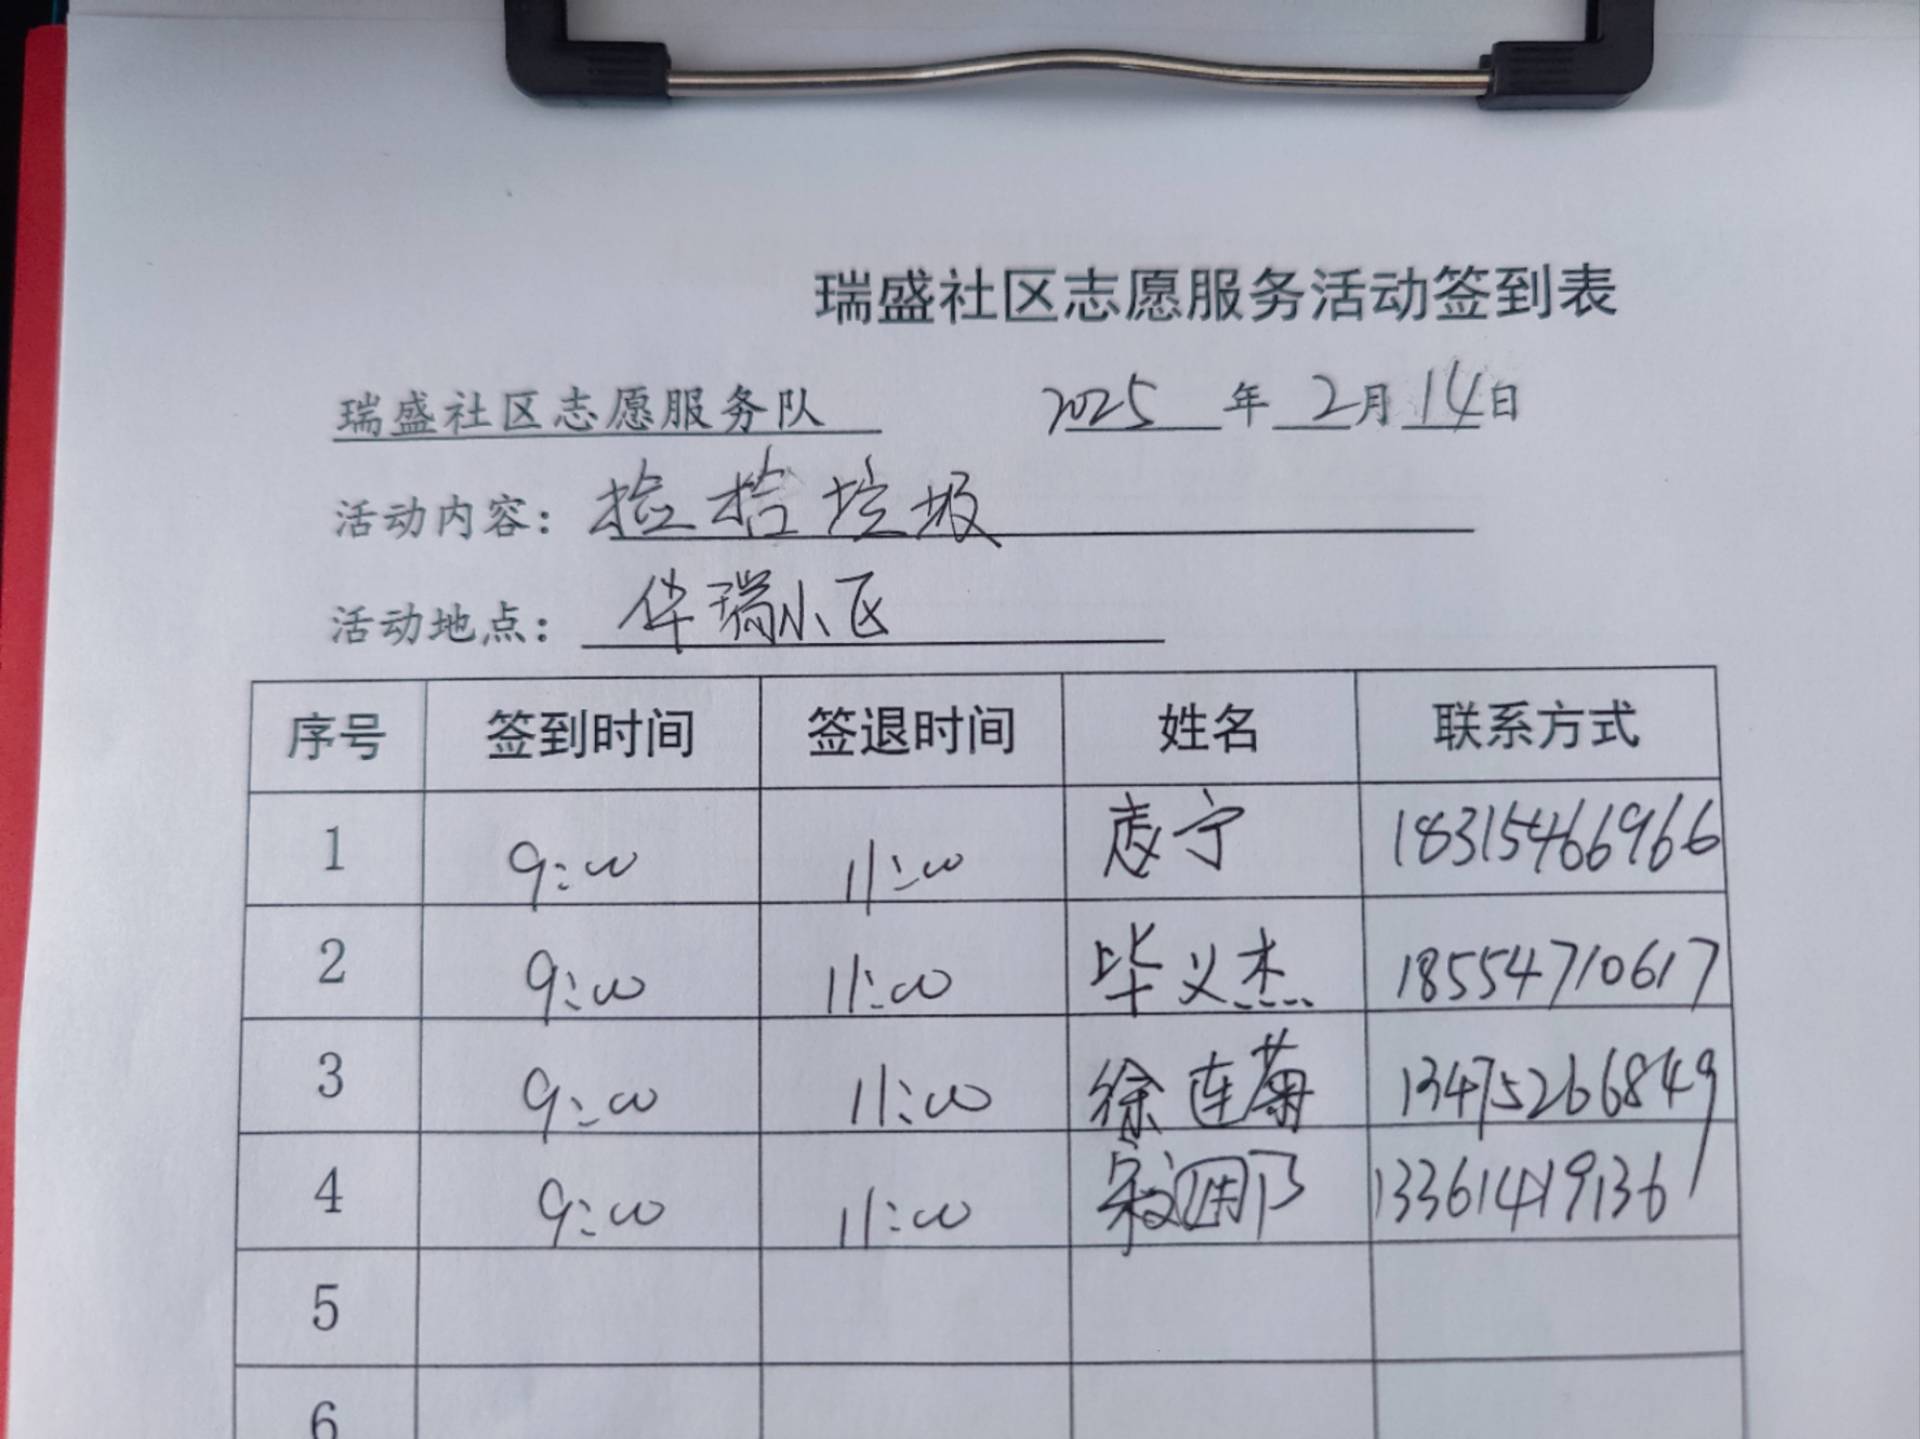 瑞盛社区志愿服务活动签到表
瑞盛社区志愿服务队 2025 年 2月14日
活动内容: 捡拾垃圾
活动地点: 华瑞小区
序号 签到时间 签退时间 姓名 联系方式
1 9:00 11:00 宁 18315466966
2 9:00 11:00 毕义杰 18554710617
3 9:00 11:00 徐连菊 13475266849
4 9:00 11:00 13361419136
5
6